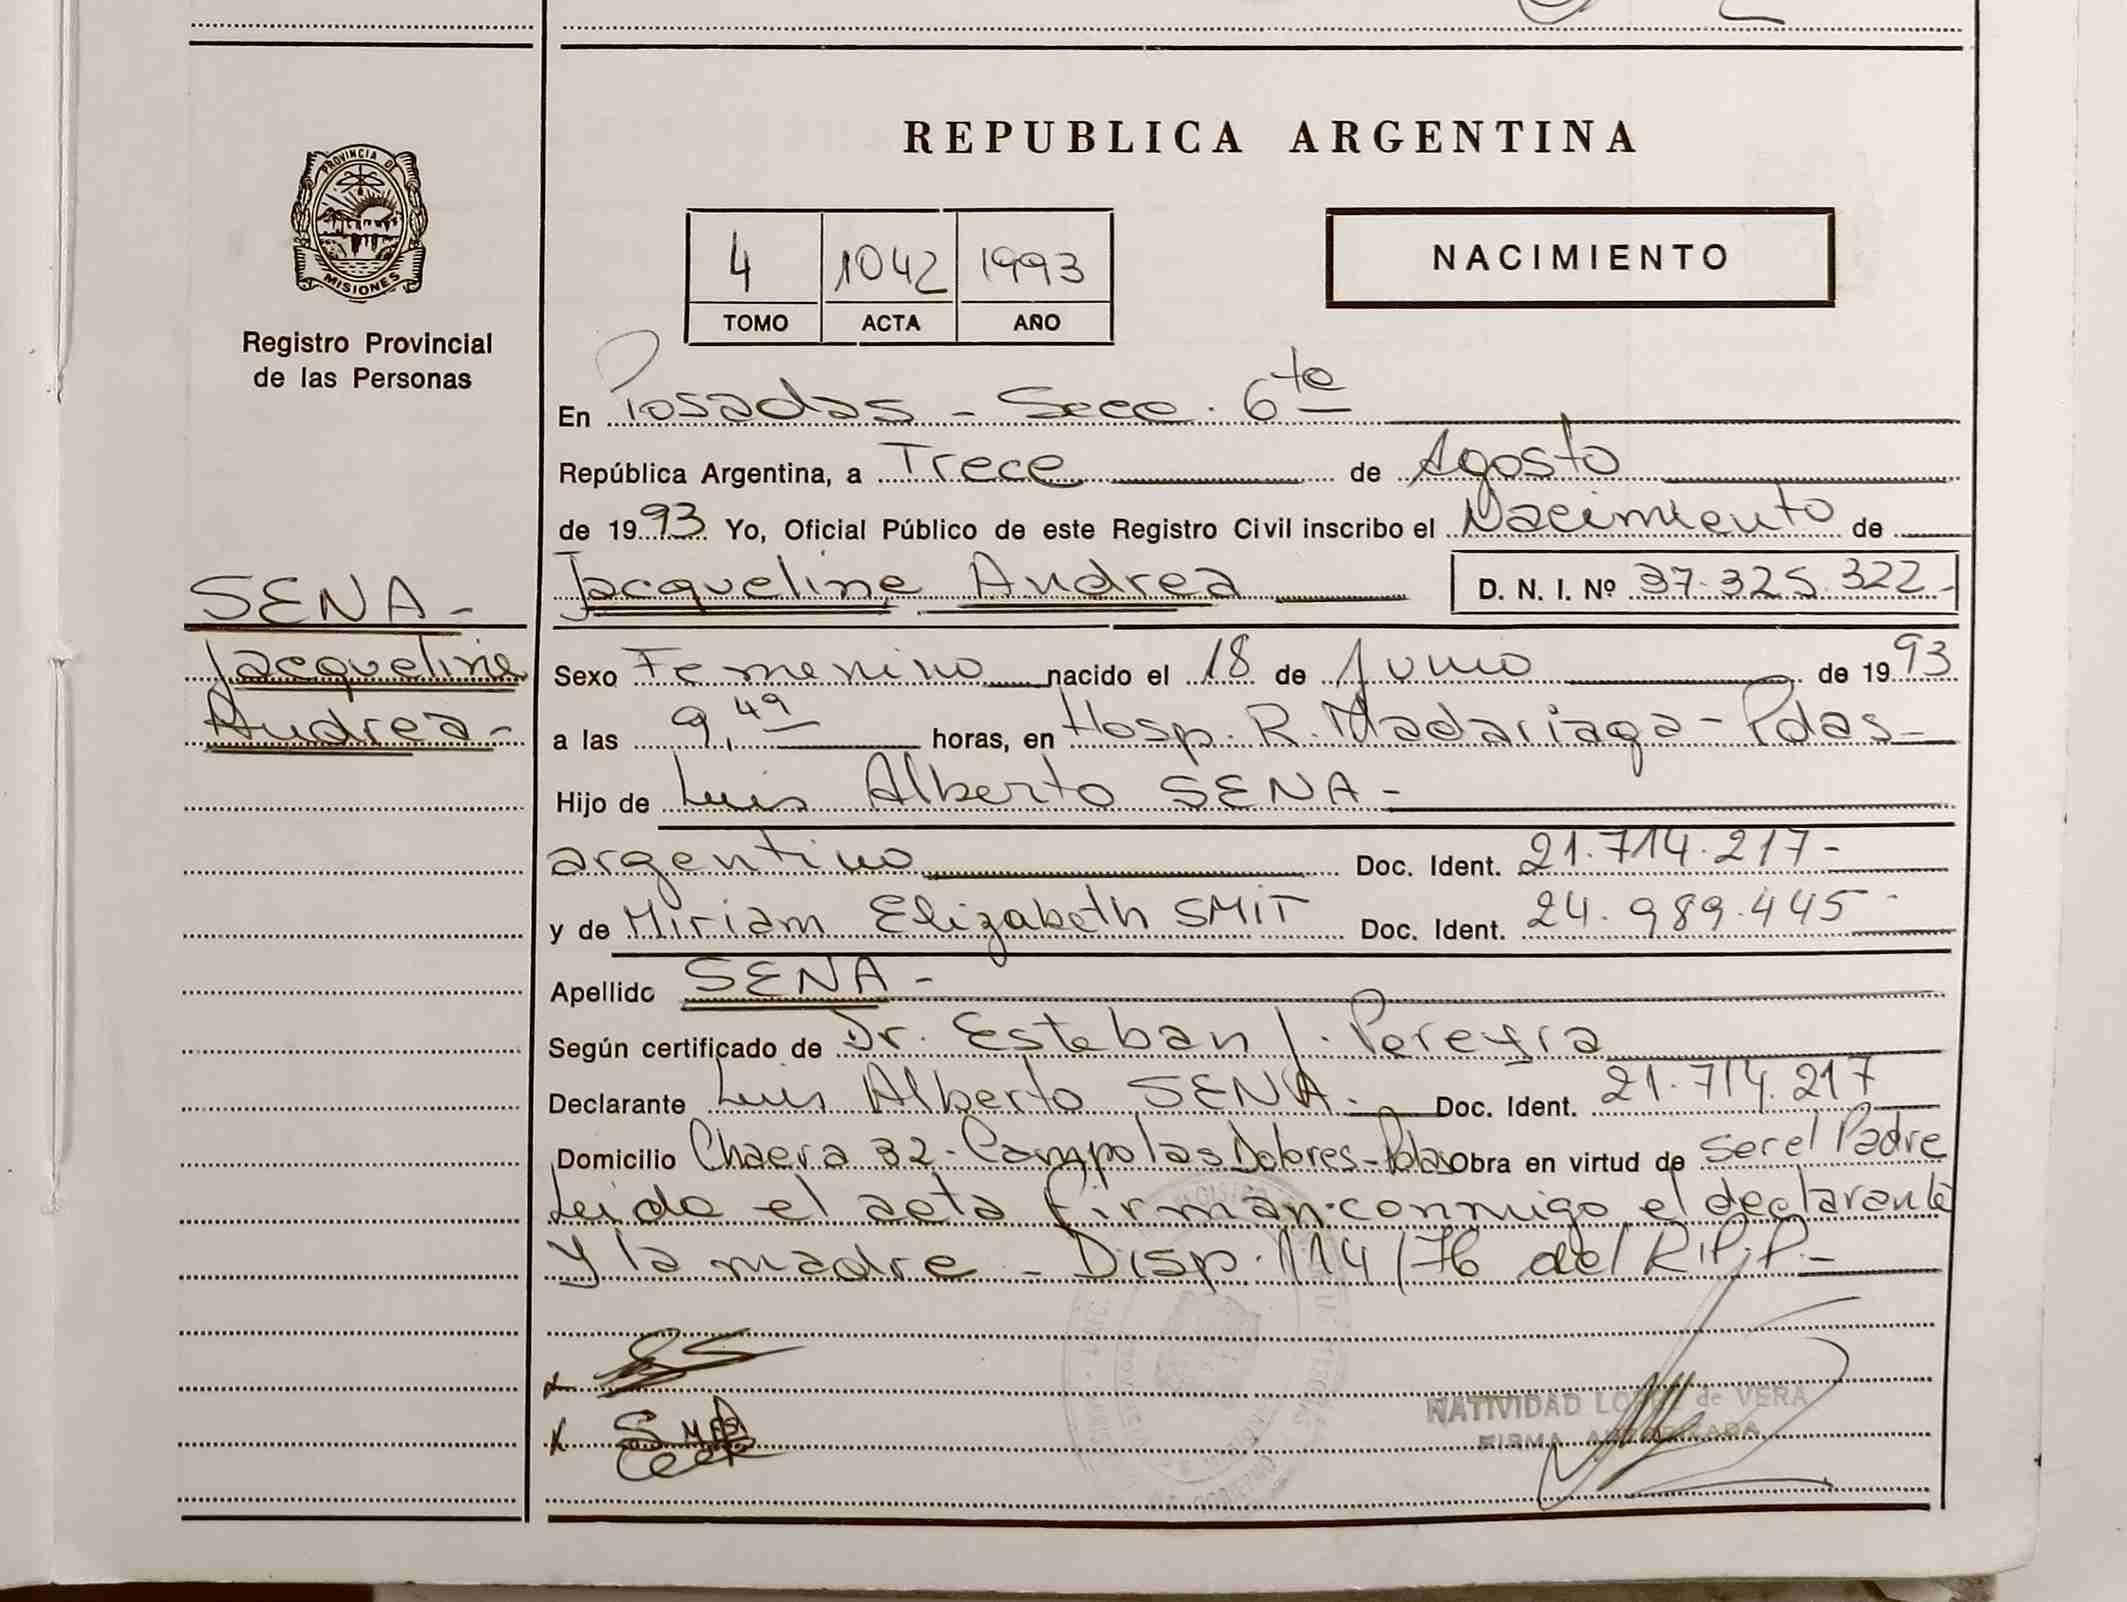 REPUBLICA ARGENTINA
PROVINCIA DE
MISIONES
Registro Provincial
de las Personas
NACIMIENTO
4 1042 1993
TOMO ACTA AÑO
En Posadas - Secc. 6ta
República Argentina, a Trece de Agosto
de 1993 Yo, Oficial Público de este Registro Civil inscribo el Nacimiento de
SENA -
Jacqueline
Andrea -
Jacqueline Andrea D. N. I. Nº 37.325.322 -
Sexo Femenino nacido el 18 de Junio de 1993
a las 9,49 horas, en Hosp. R. Madariaga - Pdas -
Hijo de Luis Alberto SENA -
argentino Doc. Ident. 21.714.217 -
y de Miriam Elizabeth SMIT Doc. Ident. 24.989.445 -
Apellido SENA -
Según certificado de Dr. Esteban J. Pereyra
Declarante Luis Alberto SENA. Doc. Ident. 21.714.217
Domicilio Chacra 32 - Campo las Dolores - Pdas Obra en virtud de ser el Padre
Leida el acta firman conmigo el declarante
y la madre - Disp. 114/76 del R.P.P. -
NATIVIDAD LOPEZ de VERA
FIRMA AUTORIZADA